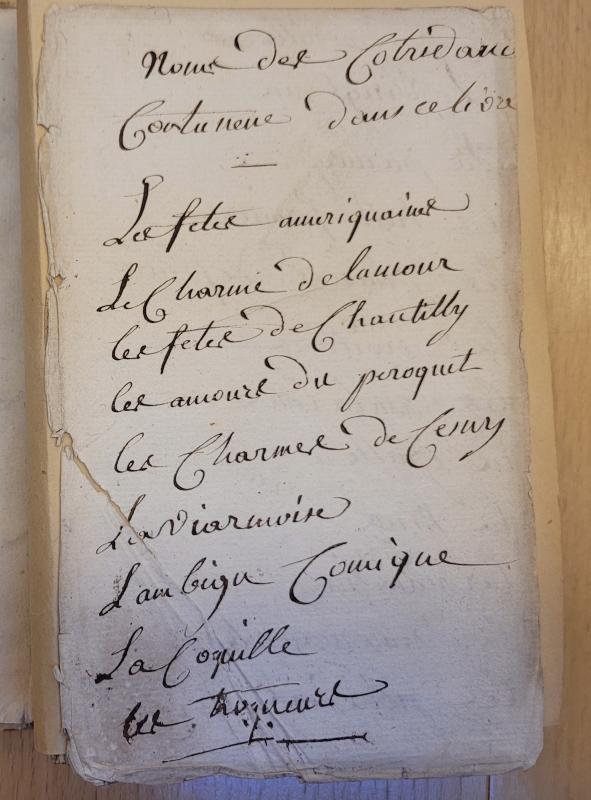 Noms des Cotredanc
Contuneue dans ce livre
Les fetes ameriquaines
Le Charme delamour
les fetes de Chantilly
les amours du peroquet
les Charmes de
La viarmoise
Lambigu Comique
La Coquille
les